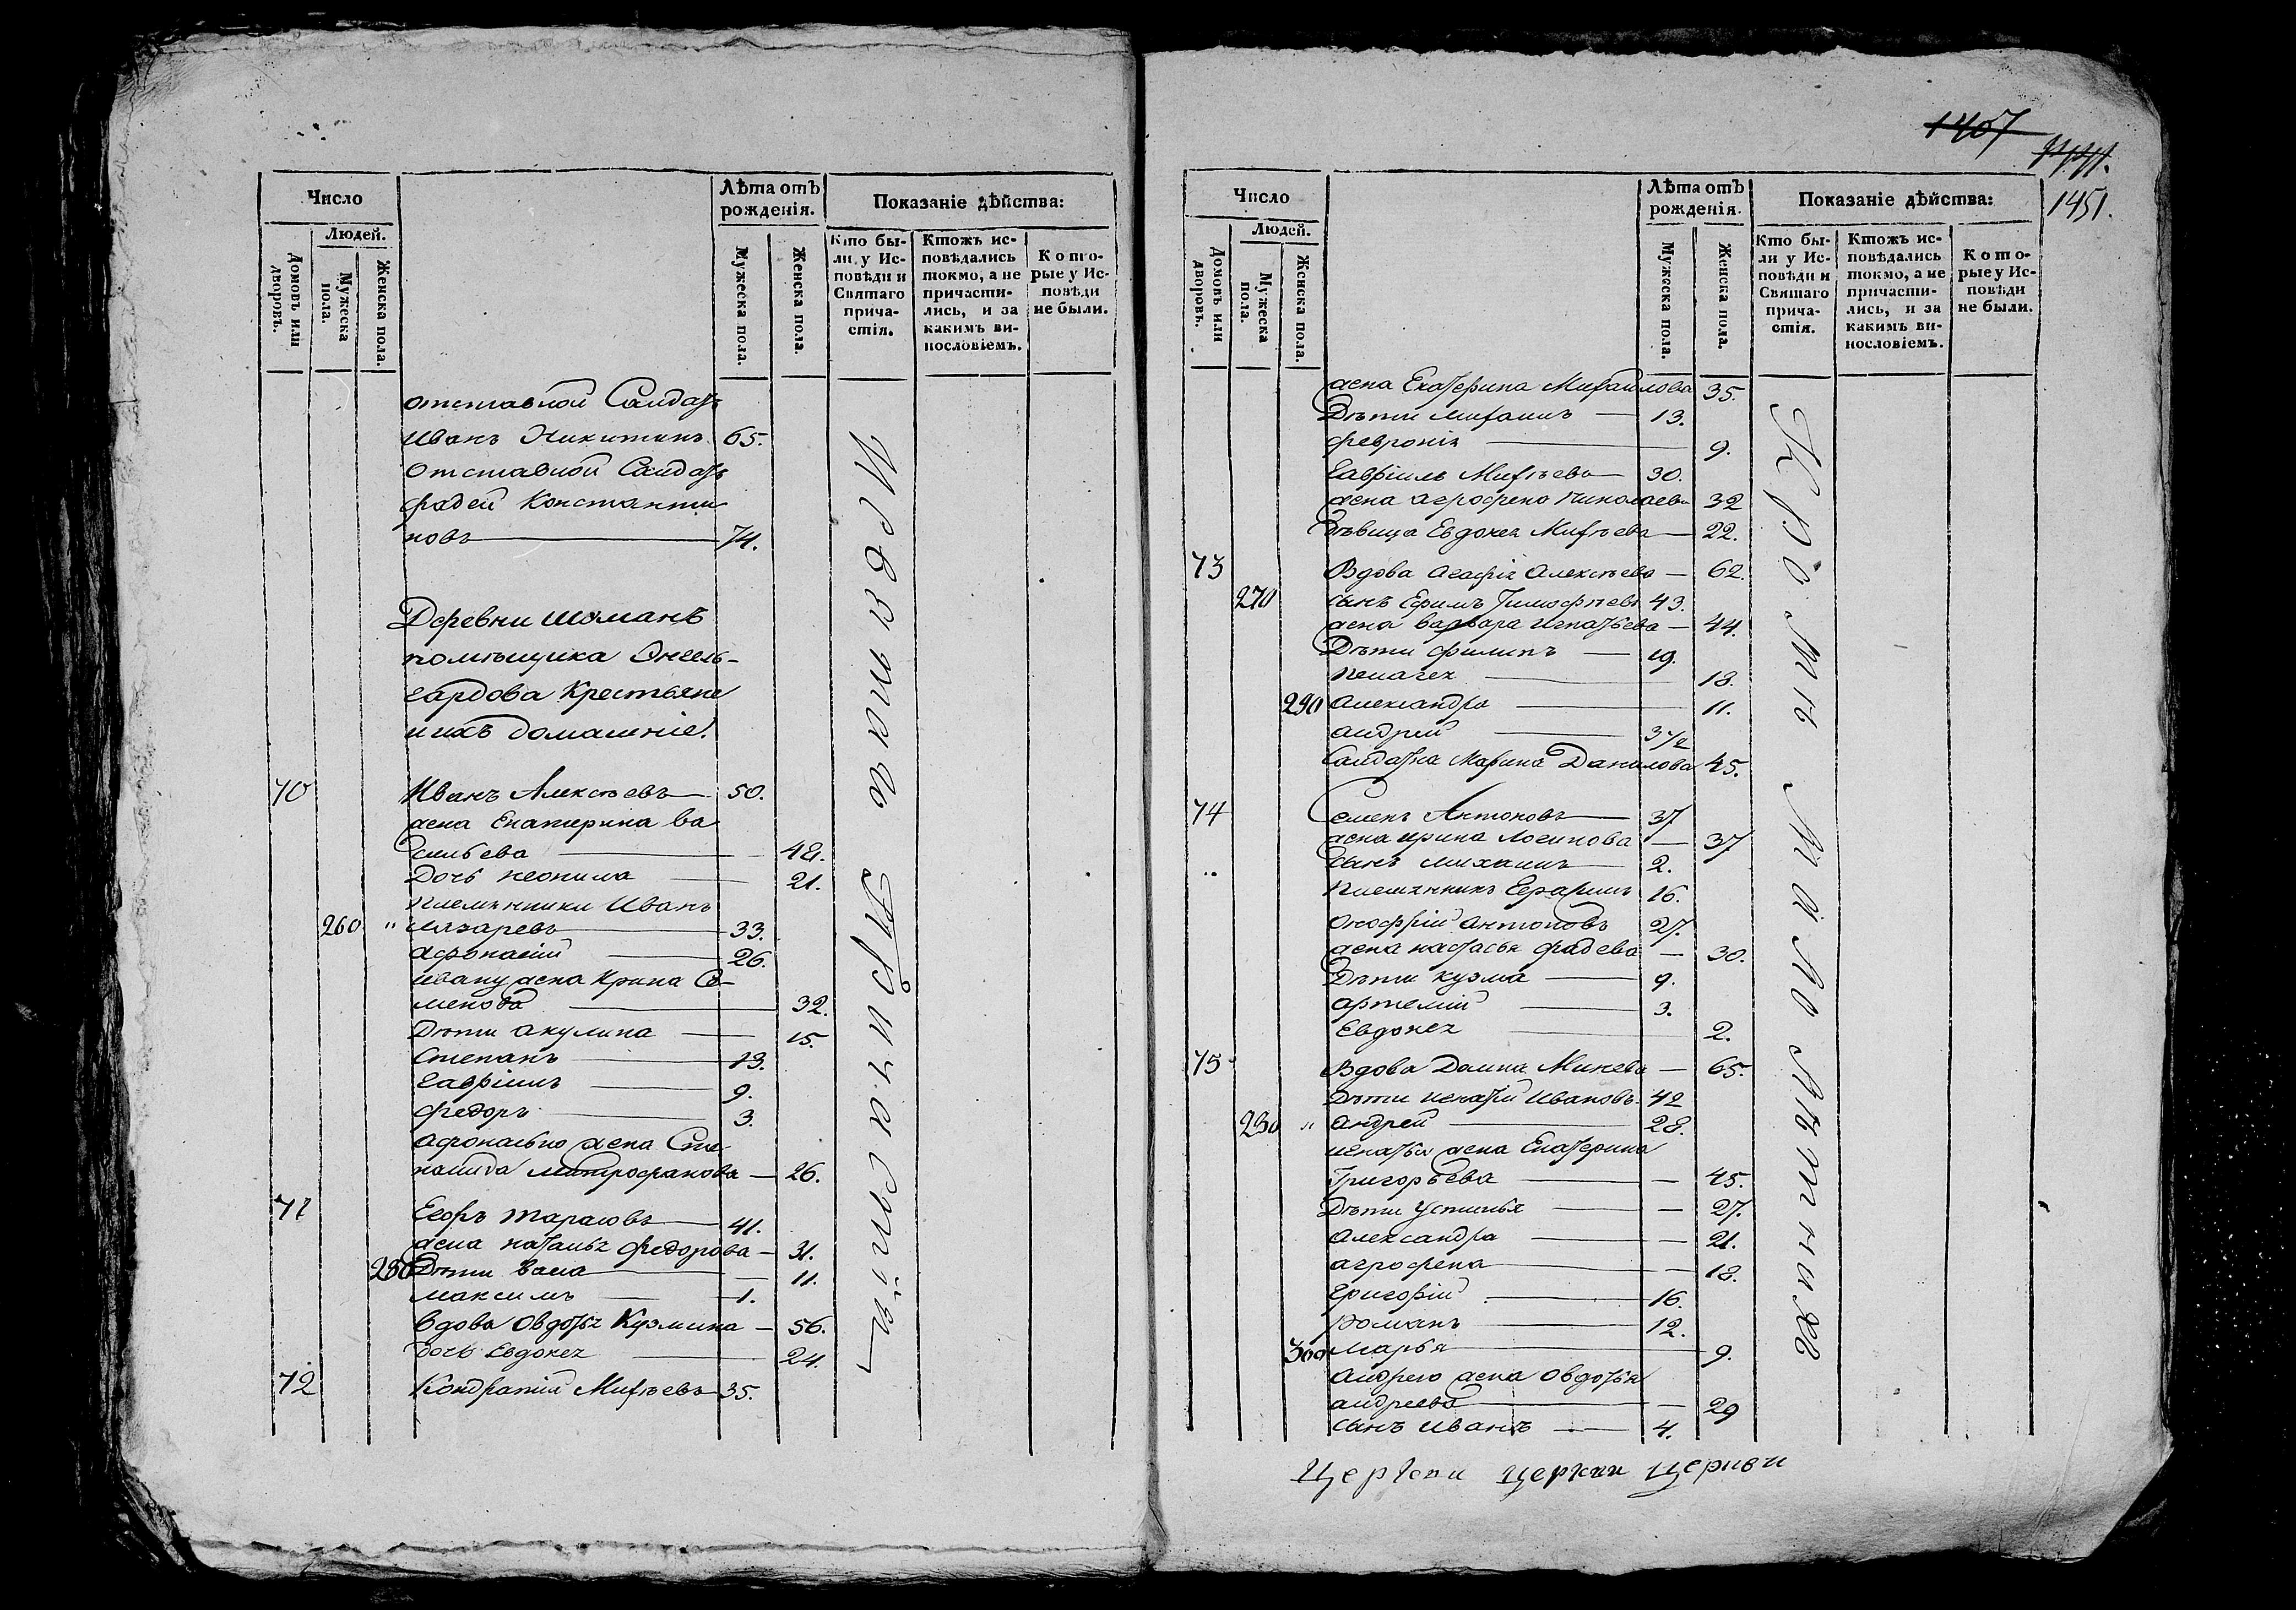 Число
Людей.
Домовъ или дворовъ.
Мужеска пола.
Женска пола.
Лѣта отъ рожденія.
Мужеска пола.
Женска пола.
Показаніе дѣйства:
Кто бы-
ли у Ис-
повѣди и
Святаго
прича-
стія.
Ктожъ ис-
повѣдались
токмо, а не
причасти-
лись, и за
какимъ ви-
нословіемъ.
Кото-
рые у Ис-
повѣди
не были.
отставной Салдатъ
Иванъ Никитинъ 65.
Отставной Салдатъ
фадей Константи
новъ 74.
Деревни
помѣщика Энгель-
гардова Крестьяне
и ихъ домашніе.
70 Иванъ Алексѣевъ 50.
жена Екатерина Ва
сильева 48.
Дочь неонила 21.
племянники Иванъ
260 " Лазаревъ 33.
Афонасій 26.
Ивану жена Ирина Се-
менова 32.
Дѣти акулина 15.
Степанъ 13.
Гавріилъ 9.
федоръ 3.
Афонасью жена Сте-
панида митрофанова 26.
71 Егоръ тарасовъ 41.
жена наталья федорова 31.
280 Дѣти васа 11.
максимъ 1.
вдова Овдотья Кузмина 56.
дочь Евдокея 24.
72 Кондратій Михѣевъ 35.
Исповѣди
Причаст
1407
1451.
Число
Людей.
Домовъ или дворовъ.
Мужеска пола.
Женска пола.
Лѣта отъ рожденія.
Мужеска пола.
Женска пола.
Показаніе дѣйства:
Кто бы-
ли у Ис-
повѣди и
Святаго
прича-
стія.
Ктожъ ис-
повѣдались
токмо, а не
причасти-
лись, и за
какимъ ви-
нословіемъ.
Кото-
рые у Ис-
повѣди
не были.
жена Екатерина Михайлова 35.
Дѣти михаилъ 13.
февронія 9.
Гавріилъ Михѣевъ 30.
жена агрофена николаева 32
дѣвица Евдокея Михѣева 22.
73 Вдова Агафія Алексѣева 62.
270 сынъ Ефимъ Тимофѣевъ 43.
жена варвара игнатьева 44.
Дѣти филипъ 19.
пелагея 18.
290 Александра 11.
андрей 3 1/2
Салдатка Марина Данилова 45.
74 Семенъ Антоновъ 37
жена ирина Логинова 37
сынъ михаилъ 2.
племянникъ Герасимъ 16.
Онофрій антоновъ 27.
жена настасья фадеева 30.
Дѣти кузма 9.
артемій 3.
Евдокея 2.
75 Вдова Домна Михеева 65.
Дѣти игнатій Ивановъ 42
280 " андрей 28.
игнатья жена Екатерина
Григорьева 45.
Дѣти устинья 27.
Александра 21.
агрофена 18.
Григорій 16.
романъ 12.
300 марья 9.
андрею жена Овдотья
андреева 29
сынъ иванъ 4.
Кромѣ малолѣтнихъ
Церкви церкви церкви